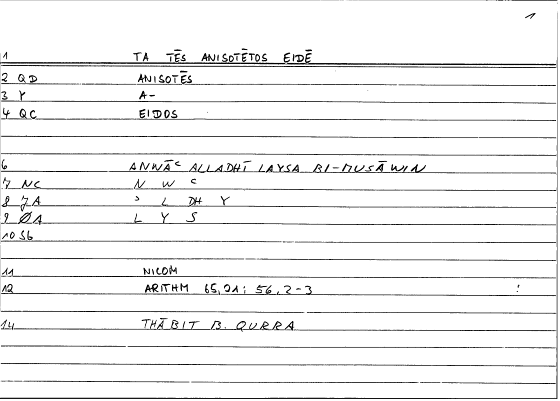 1
1 TA TĒS ANISOTĒTOS EIDĒ
2 QD ANISOTĒS
3 Y A-
4 QC EIDOS
6 ANWĀᶜ ALLADHĪ LAYSA BI-MUSĀWIN
7 NC N W ᶜ
8 JA ʾ L DH Y
9 ØA L Y S
10 56
11 NICOM
12 ARITHM 65,21; 56,2-3 :
14 THĀBIT B. QURRA